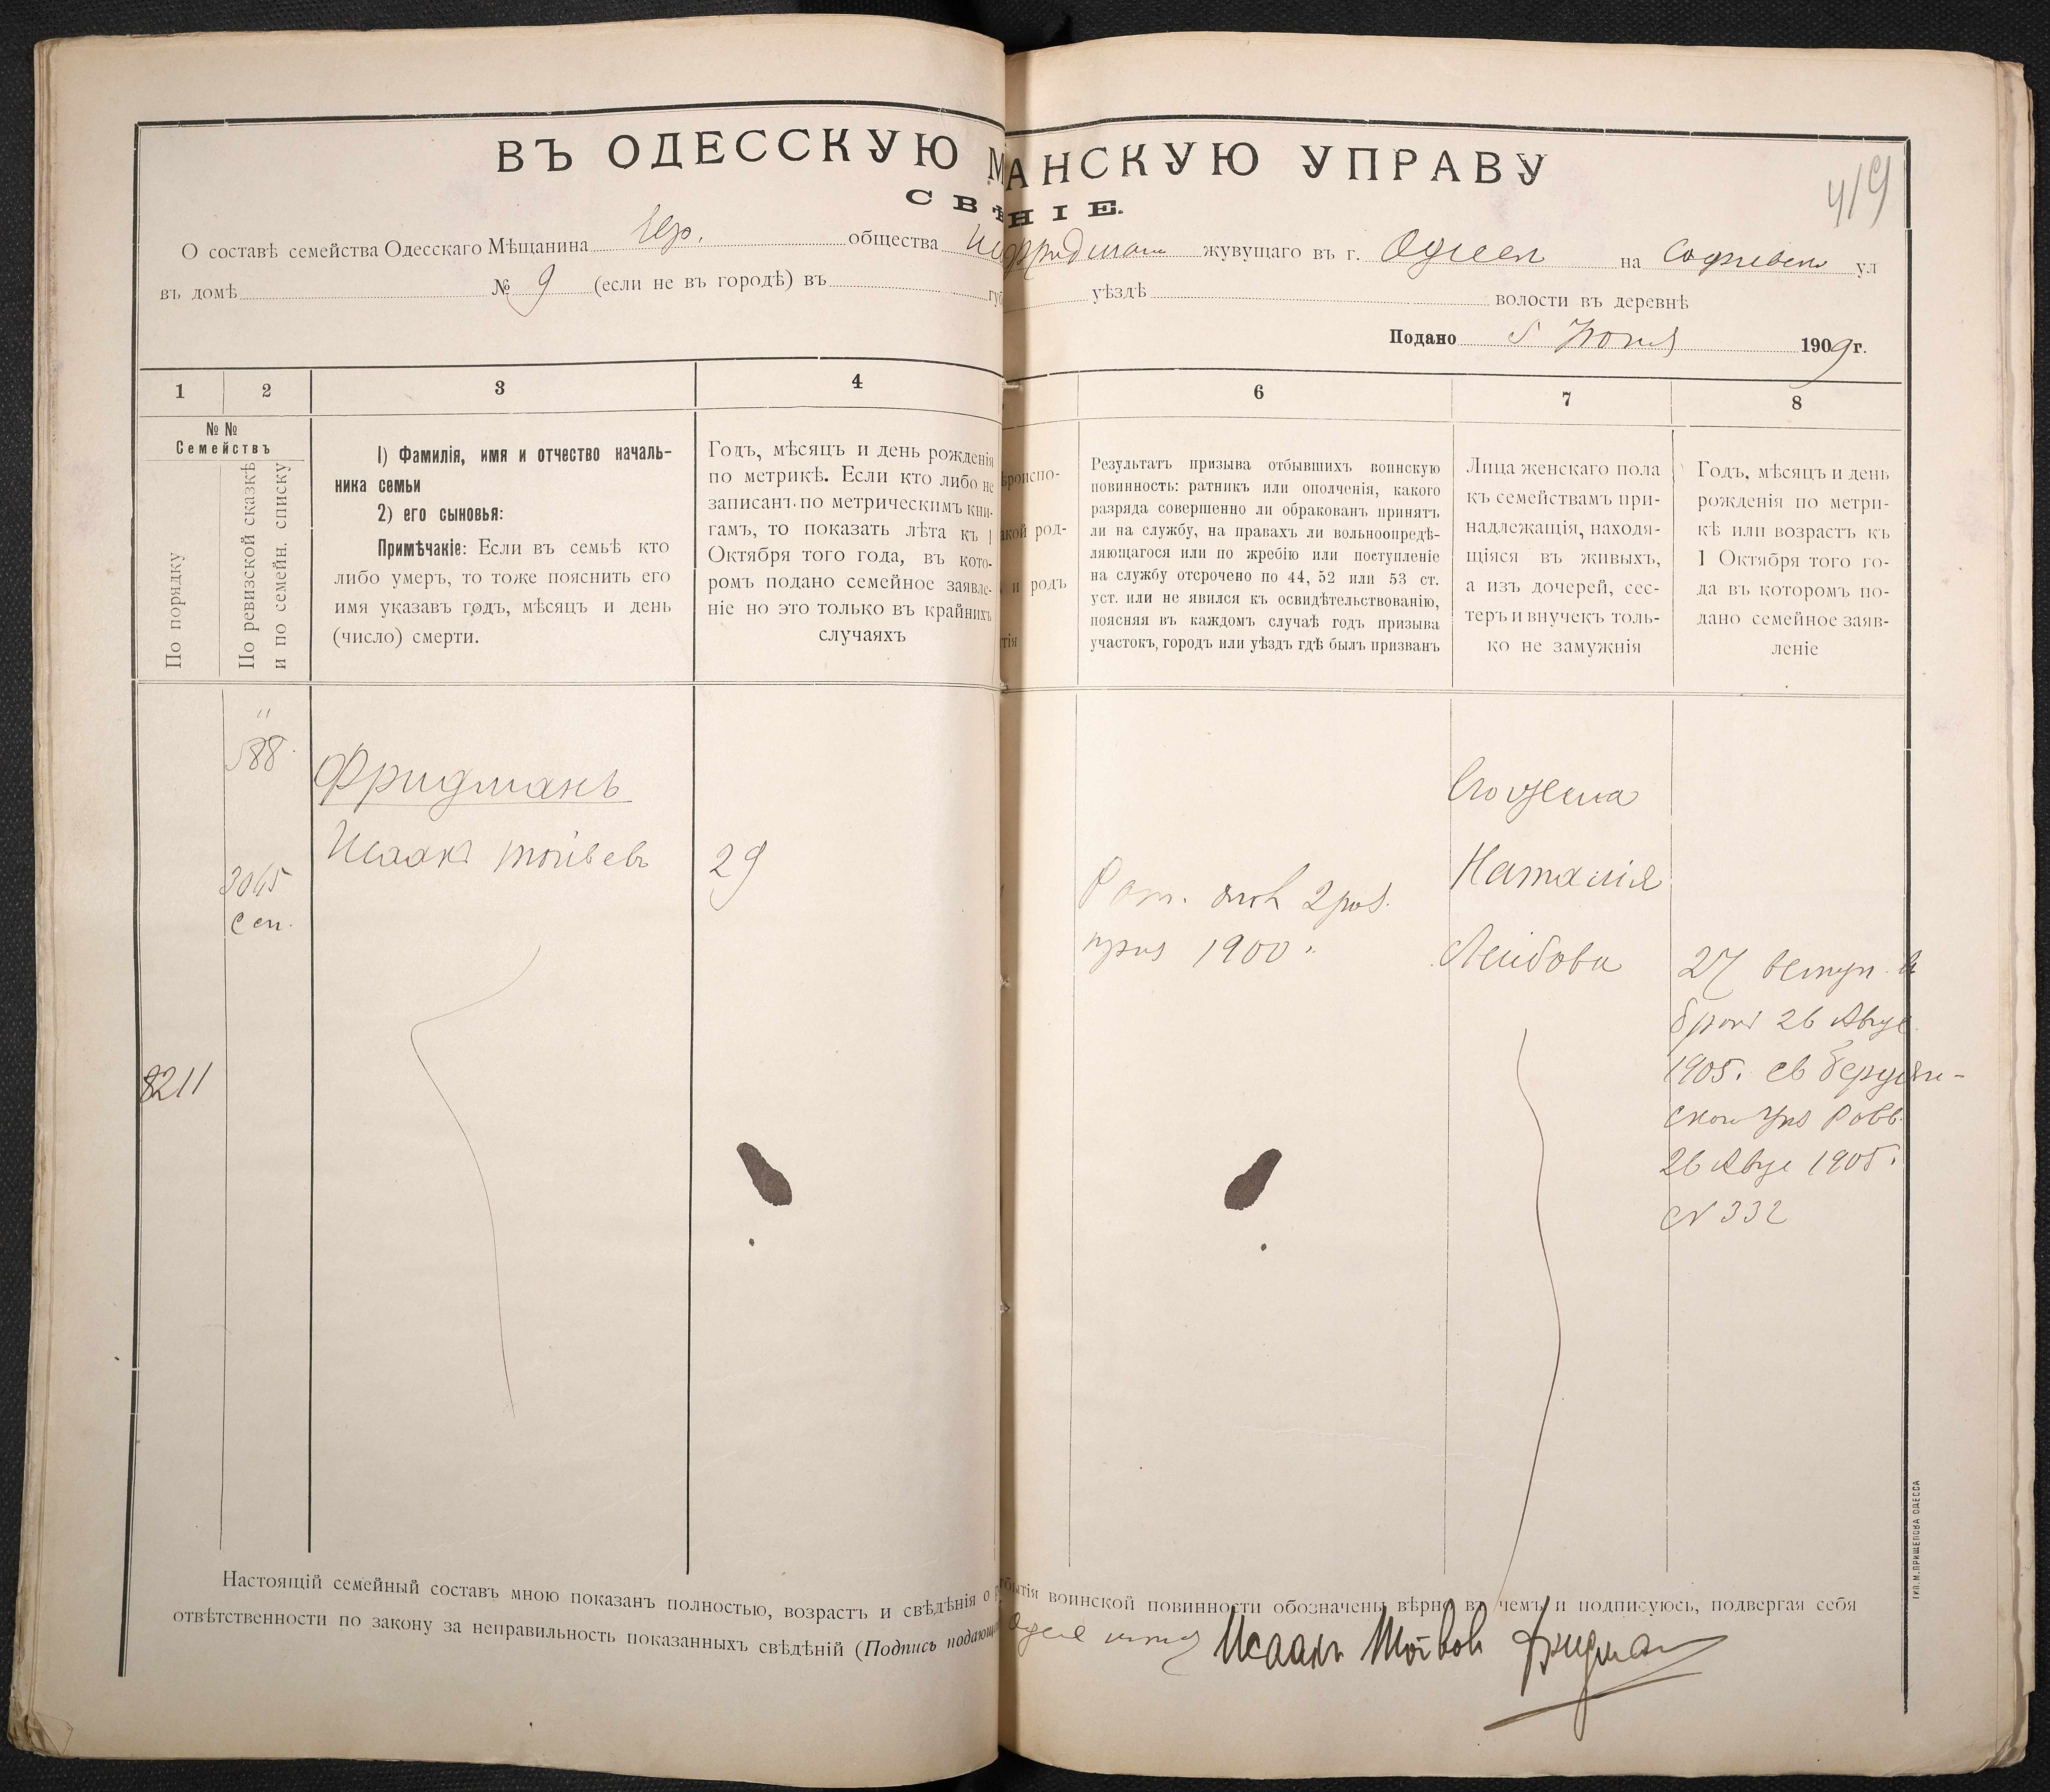 ВЪ ОДЕССКУЮ М
АНСКУЮ УПРАВУ
419
СВѢ
НІЕ.
О составѣ семейства Одесскаго Мѣщанина Евр. общества
жувущаго въ г. Одессѣ на Софіевск ул
въ домѣ № 9 (если не въ городѣ) въ
уѣздѣ волости въ деревнѣ
Подано 5 Іюня 1909 г.
1 2 3 4
6 7 8
№ №
Семействъ
По порядку
По ревизской сказкѣ
и по семейн. списку
1) Фамилія, имя и отчество началь-
ника семьи
2) его сыновья:
Примѣчакіе: Если въ семьѣ кто
либо умеръ, то тоже пояснить его
имя указавъ годъ, мѣсяцъ и день
(число) смерти.
Годъ, мѣсяцъ и день рожденія
по метрикѣ. Если кто либо не
записанъ по метрическимъ кни-
гамъ, то показать лѣта къ 1
Октября того года, въ кото-
ромъ подано семейное заявле-
ніе но это только въ крайнихъ
случаяхъ
ѣроиспо-
акой род-
и родъ
тія
Результатъ призыва отбывшихъ воинскую
повинность: ратникъ или ополченія, какого
разряда совершенно ли обракованъ принятъ
ли на службу, на правахъ ли вольноопредѣ-
ляющагося или по жребію или поступленіе
на службу отсрочено по 44, 52 или 53 ст.
уст. или не явился къ освидѣтельствованію,
поясняя въ каждомъ случаѣ годъ призыва
участокъ, городъ или уѣздъ гдѣ былъ призванъ
Лица женскаго пола
къ семействамъ при-
надлежащія, находя-
щіяся въ живыхъ,
а изъ дочерей, сес-
теръ и внучекъ толь-
ко не замужнія
Годъ, мѣсяцъ и день
рожденія по метри-
кѣ или возрастъ къ
1 Октября того го-
да въ которомъ по-
дано семейное заяв-
леніе
588
Фридманъ
Исаакъ Тойвев
29
3065
Сен.
8211
Рат. опол 2 раз.
приз 1900
Его жена
Наталія
Лейбова
27 вступ. в
бракъ 26 Авгус
1905. св Бердян-
ской Упр Равв.
26 Авгус 1905.
№ 332
Настоящій семейный составъ мною показанъ полностью, возрастъ и свѣдѣнія о
бытія воинской повинности обозначены вѣрно въ чемъ и подписуюсь, подвергая себя
отвѣтственности по закону за неправильность показанныхъ свѣдѣній (Подпись подающ
Исаакъ Тойвов Фридман
ТИП. М. ПРИЩЕПОВА ОДЕССА